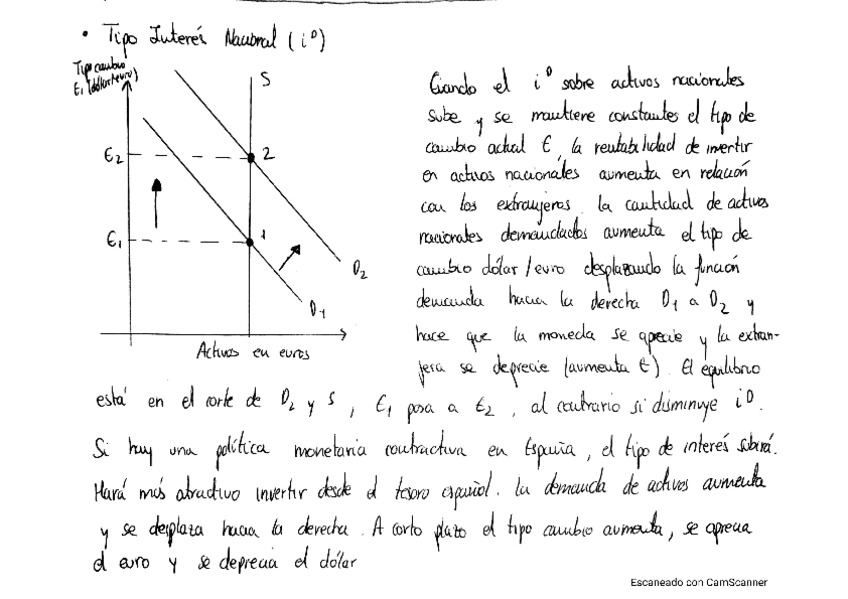 • Tipo Interés Nacional (i^D)
Tipo cambio
E, (dólar/euro)
S
Є2
2
Є1
1
D2
D1
Activos en euros
Cuando el i^D sobre activos nacionales
sube y se mantiene constantes el tipo de
cambio actual Є, la rentabilidad de invertir
en activos nacionales aumenta en relación
con los extranjeros. la cantidad de activos
nacionales demandados aumenta el tipo de
cambio dólar/euro desplazando la función
demanda hacia la derecha D1 a D2 y
hace que la moneda se aprecie y la extran-
jera se deprecie (aumenta Є). El equilibrio
está en el corte de D2 y S, Є1 pasa a Є2, al contrario si disminuye i^D.
Si hay una política monetaria contractiva en España, el tipo de interés subirá.
Hará más atractivo invertir desde el tesoro español. la demanda de activos aumenta
y se desplaza hacia la derecha. A corto plazo el tipo cambio aumenta, se aprecia
el euro y se deprecia el dólar
Escaneado con CamScanner